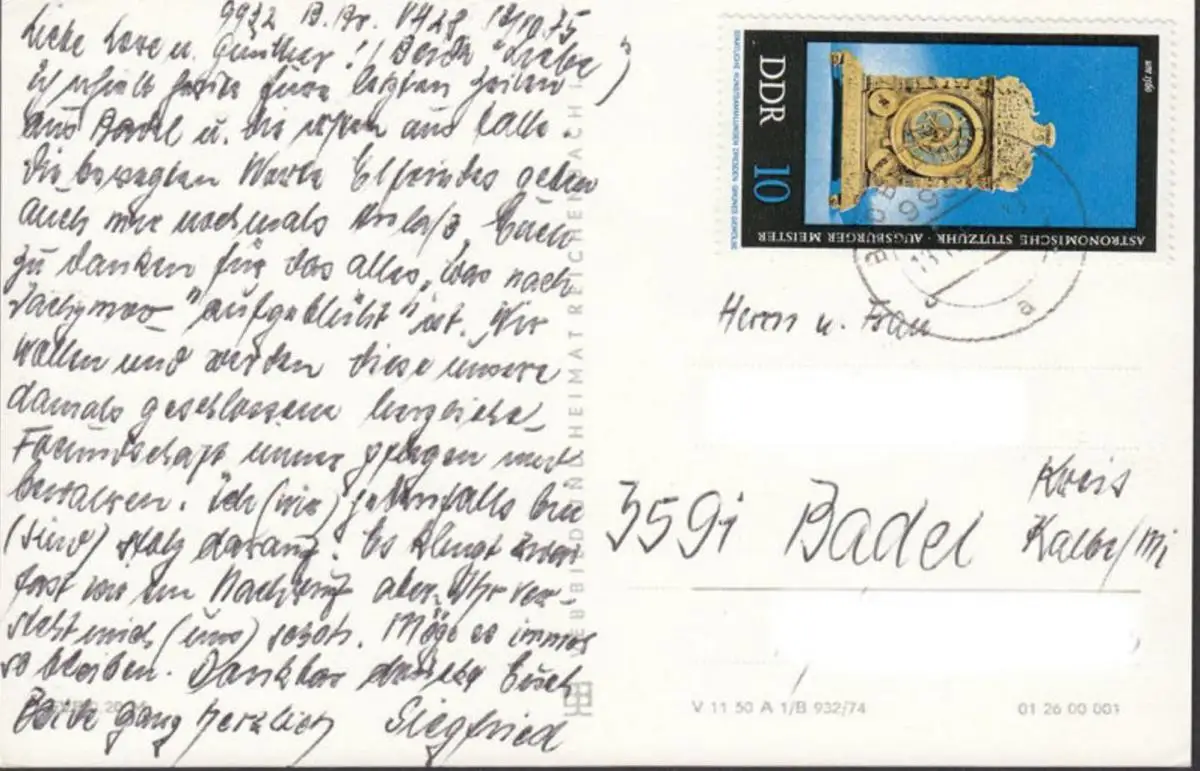 9932 B. Br. 18/10.75
Liebe Lore u. Günther!
Ich erhielt heute Eure letzten Zeilen
aus Badel u. die ersten aus Halle.
Die bewegten Worte Elfriedes geben
auch mir nochmals Anlaß Euch
zu danken für das alles, was nach
"aufgeblüht" ist. Wir
wollen und werden diese unsere
damals geschlossene herzliche
Freundschaft immer pflegen und
bewahren. Ich (wir) jedenfalls bin
(sind) stolz darauf. Es klingt zwar
fast wie ein Nachruf aber Ihr ver-
steht mich (uns) schon. Möge es immer
so bleiben. Dankbar drückt Euch
Beide ganz herzlich Siegfried
VEB BILD UND HEIMAT REICHENBACH I
DDR 10
um 1560
STAATLICHE KUNSTSAMMLUNGEN DRESDEN · GRÜNES GEWÖLBE
ASTRONOMISCHE STUTZUHR · AUGSBURGER MEISTER
a
Herrn u. Frau
3591 Badel
Kreis
Kalbe/Mi
V 11 50 A 1/B 932/74
01 26 00 001